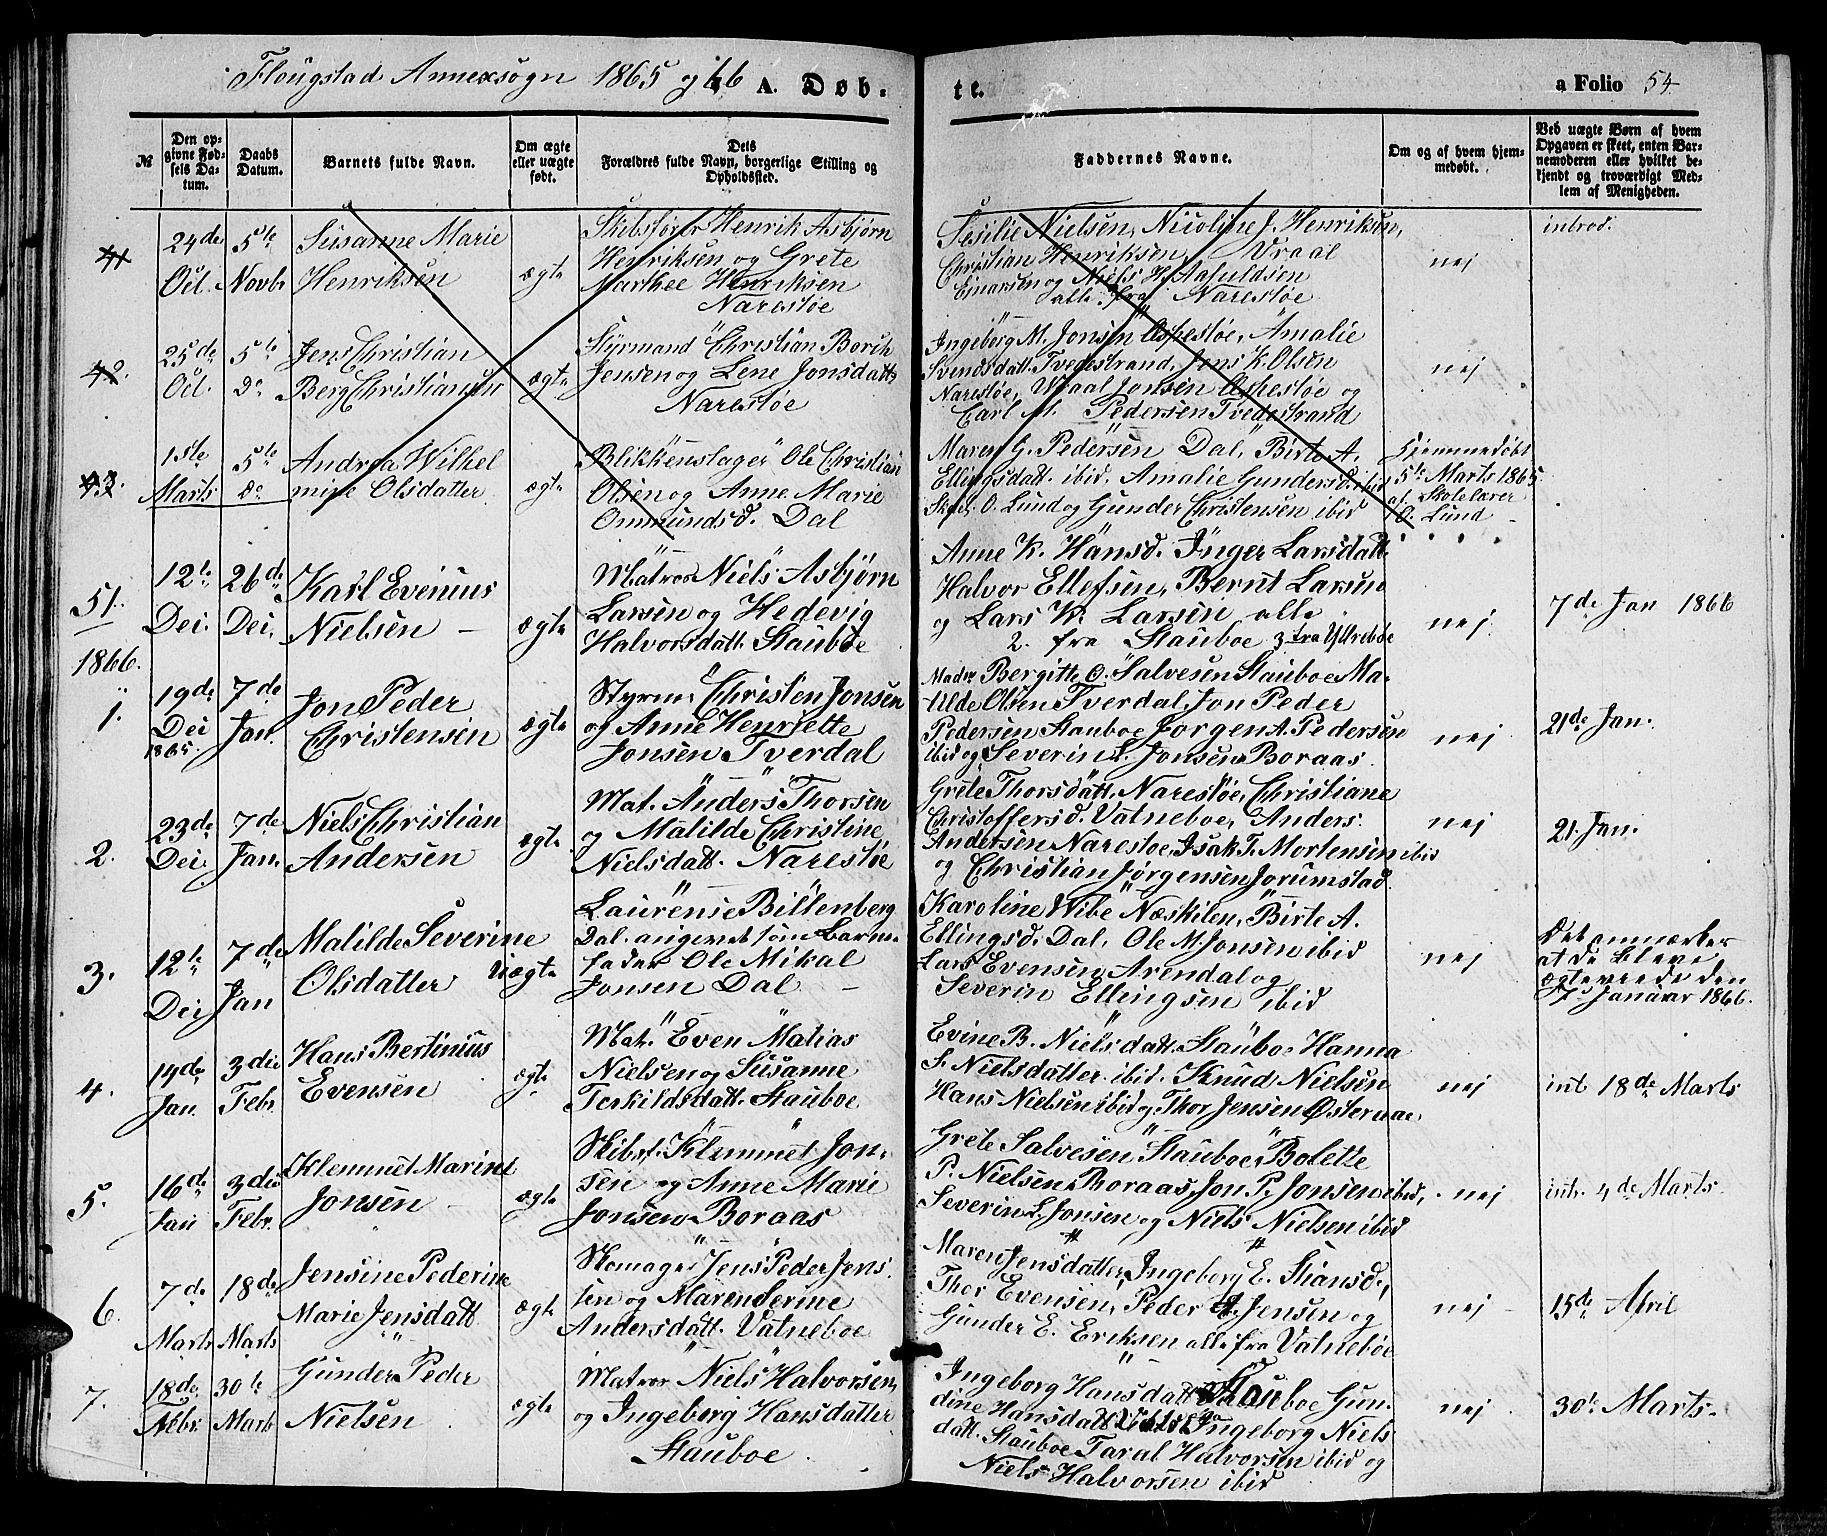 Flougstad Annexsogn 1865 og 66 A. Døb-
te.
a Folio 54.
№
Den op-
givne Fød-
sels Da-
tum.
Daabs
Datum.
Barnets fulde Navn.
Om ægte
eller uægte
født.
Dels
Forældres fulde Navn, borgerlige Stilling og
Opholdssted.
Faddernes Navne.
Om og af hvem hjem-
medøbt.
Ved uægte Børn af hvem
Opgaven er skeet, enten Bar-
nemoderen eller hvilket be-
kjendt og troværdigt Med-
lem af Menigheden.
41
24de
Oct.
5te
Novbr
Susanne Marie
Henriksen
ægte
Skibsfører Henrik Asbjørn
Henriksen og Grete
Marthee Henriksen
Narestøe
Sesilie Nielsen, Nicoline J. Henriksen,
Christian Henriksen, Vraal
Einarsen og Niels H. Aafuldsøn
alle fra Narestøe
nej
introd.
42.
25de
Oct.
5te
do
Jens Christian
Berg Christiansen
ægte
Styrmand Christian Borik
Jensen og Lene Jonsdatt.
Narestøe
Ingeborg M. Jonsen Aspestøe, Amalie
Svendsdatt. Tvedestrand, Jens K. Olsen
Narestøe, Vraal Jonsen Aspestøe og
Carl M. Pedersen Tvedestrand
nej
43.
1ste
Marts
5te
do
Andrea Wilhel
mine Olsdatter
ægte
Blikkenslager Ole Christian
Olsen og Anne Marie
Ommundsd. Dal
Maren G. Pedersen Dal, Birte A.
Ellingsdatt. ibid, Amalie Gundersd. ibid
Skol. O. Lund og Gunder Christensen ibid
Hjemmedøbt
5te Marts 1865
af Skolelærer
O. Lund
51.
12te
Dec.
26de
Dec.
Karl Evenius
Nielsen
ægte
Matros Niels Asbjørn
Larsen og Hedevig
Halvorsdatt. Stauboe
Anne K. Hansd. Inger Larsdatt.
Halvor Ellefsen, Bernt Larsen
og Lars K. Larsen alle
2. fra Stauboe 3 fra Ytreboe
nej.
7de Jan 1866
1866.
1.
19de
Dec
1865.
7de
Jan.
Jon Peder
Christensen
ægte
Styrm. Christen Jonsen
og Anne Henriette
Jonsen Tverdal
Mad. Bergitte O. Salvesen Stauboe Ma-
tilde Olsen Tverdal, Jon Peder
Pedersen Stauboe Jorgen A. Pedersen
ibid og Severin L. Jonsen Boraas
nej
21de Jan.
2.
23de
Dec.
7de
Jan.
Niels Christian
Andersen
ægte
Mat. Anders Thorsen
og Matilde Christine
Nielsdatt. Narestøe
Grete Thorsdatt. Narestøe, Christiane
Christoffersd. Vatneboe, Anders
Andersen Narestøe, Isak T. Mortensen ibid
og Christian Jørgensen Jorumstad
nej
21. Jan.
3.
12te
Dec
7de
Jan
Matilde Severine
Olsdatter
Uægte
Laurense Biltenberg
Dal. angivet som Barne-
fader Ole Mikal
Jonsen Dal
Karoline Wibe Næskilen, Birte A.
Ellingsd. Dal, Ole M. Jonsen ibid
Lars Evensen Arendal og
Severin Ellingsen ibid
nej
Det anmærkes
at de bleve
ægteviede den
7de Januar 1866.
4.
19de
Jan.
3die
Febr.
Hans Bertinius
Evensen
ægte
Mat. Even Matias
Nielsen og Susanne
Terkildsdatt. Stauboe
Evine B. Nielsdatt. Stauboe Hanna
S. Nielsdatter ibid. Knud Nielsen
Hans Nielsen ibid og Thor Jensen Østernæ.
nej
int 18de Marts
5.
16de
Jan
3die
Febr.
Klemmet Marius
Jonsen
ægte
Skibsf. Klemmet Jon-
sen og Anne Marie
Jonsen Boraas
Grete Salvesen Stauboe, Bolette
P. Nielsen Boraas, Jon P. Jonsen ibid,
Severin L. Jonsen og Niels Nielsen ibid
nej
int. 4de Marts
6.
7de
Marts
18de
Marts
Jensine Pederine
Marie Jensdatt
ægte
Skomager Jens Peder Jens
sen og Maren Serine
Andersdatt. Vatneboe
Maren Jensdatter, Ingeborg E. Hansd.,
Thor Evensen, Peder A. Jensen og
Gunder E. Eriksen alle fra Vatneboe
nej
15de April
7.
18de
Febr.
30te
Marts
Gunder Peder
Nielsen
ægte
Matros Niels Halvorsen,
og Ingeborg Hansdatter
Stauboe
Ingeborg Hansdatt Stauboe Gun-
dine Hansdatt Ingeborg Niels
datt. Stauboe Taral Halvorsen ibid og
Niels Halvorsen ibid
nej
30te Marts